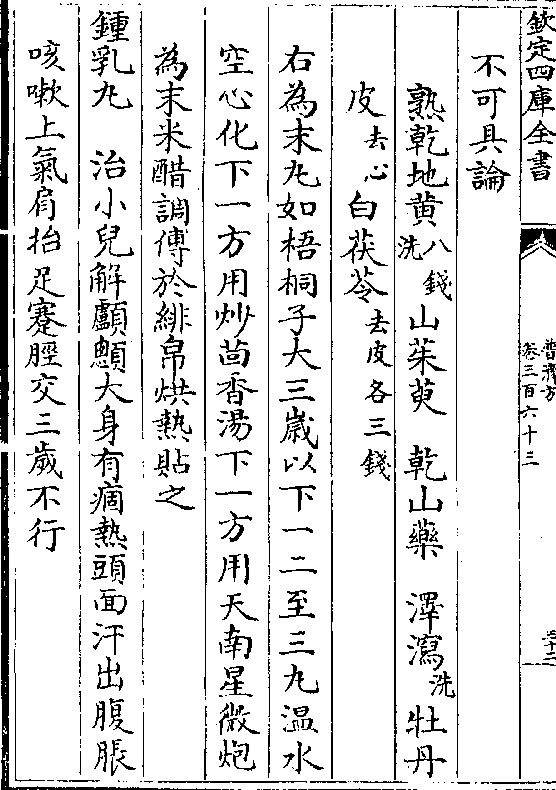 欽定四庫全書
普濟方
卷三百六十三
不可具論
熟乾地黄八錢洗 山茱萸 乾山藥 澤瀉洗 牡丹
皮去心白茯苓去皮各三錢
右為末丸如梧桐子大三歲以下一二至三丸温水
空心化下一方用炒茴香湯下一方用天南星微炮
為末米醋調傅於緋帛烘熱貼之
鍾乳丸 治小兒解顱顱大身有痼熱頭面汗出腹脹
咳嗽上氣肩抬足蹇脛交三歲不行